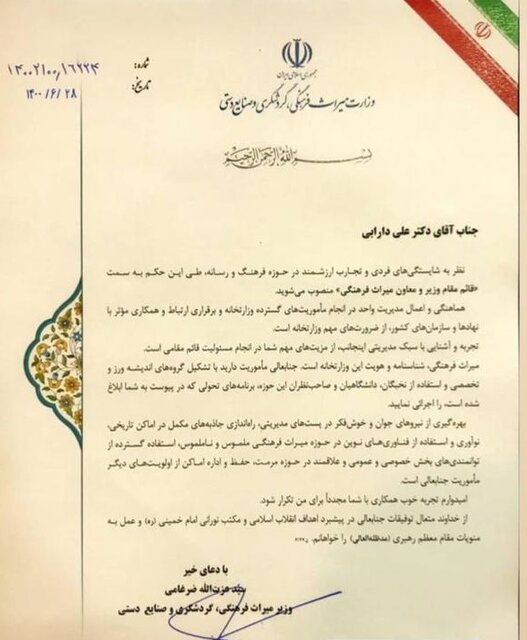 جمهوری اسلامی ایران
وزارت میراث فرهنگی، گردشگری و صنایع دستی
شماره: ۱۴۰۰۲۱۰۰,۱۶۲۲۴
تاریخ: ۱۴۰۰/۶/۲۸
بسم الله الرحمن الرحیم
جناب آقای دکتر علی دارابی
نظر به شایستگی‌های فردی و تجارب ارزشمند در حوزه فرهنگ و رسانه، طی این حکم به سمت
«قائم مقام وزیر و معاون میراث فرهنگی» منصوب می‌شوید.
هماهنگی و اعمال مدیریت واحد در انجام مأموریت‌های گسترده وزارتخانه و برقراری ارتباط و همکاری مؤثر با
نهادها و سازمان‌های کشور، از ضرورت‌های مهم وزارتخانه است.
تجربه و آشنایی با سبک مدیریتی اینجانب، از مزیت‌های مهم شما در انجام مسئولیت قائم مقامی است.
میراث فرهنگی، شناسنامه و هویت این وزارتخانه است. جنابعالی مأموریت دارید با تشکیل گروه‌های اندیشه ورز و
تخصصی و استفاده از نخبگان، دانشگاهیان و صاحب‌نظران این حوزه، برنامه‌های تحولی که در پیوست به شما ابلاغ
شده است، را اجرائی نمایید.
بهره‌گیری از نیروهای جوان و خوش‌فکر در پست‌های مدیریتی، راه‌اندازی جاذبه‌های مکمل در اماکن تاریخی،
نوآوری و استفاده از فناوری‌های نوین در حوزه میراث فرهنگی ملموس و ناملموس، استفاده گسترده از
توانمندی‌های بخش خصوصی و عمومی و علاقمند در حوزه مرمت، حفظ و اداره اماکن از اولویت‌های دیگر
مأموریت جنابعالی است.
امیدوارم تجربه خوب همکاری با شما مجدداً برای من تکرار شود.
از خداوند متعال توفیقات جنابعالی در پیشبرد اهداف انقلاب اسلامی و مکتب نورانی امام خمینی (ره) و عمل به
منویات مقام معظم رهبری (مدظله‌العالی) را خواهانم.
با دعای خیر
سید عزت‌الله ضرغامی
وزیر میراث فرهنگی، گردشگری و صنایع دستی